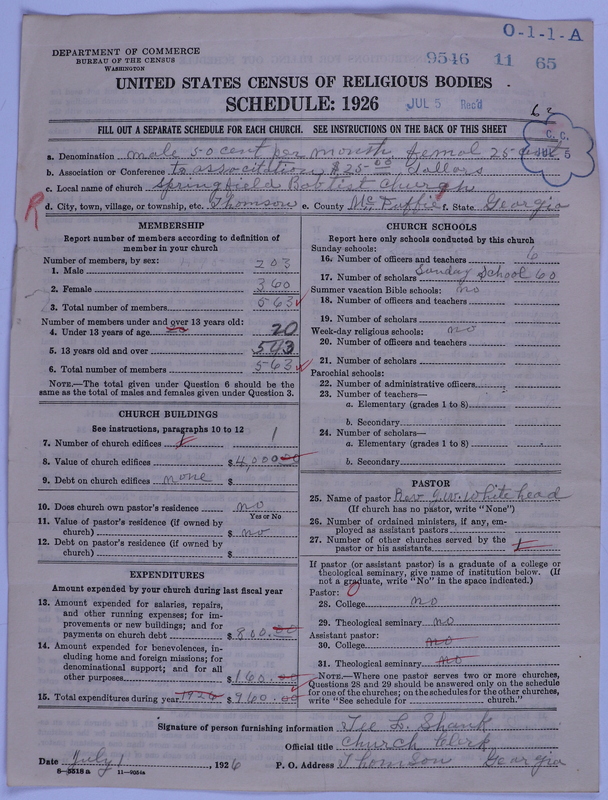 O-1-1-A
DEPARTMENT OF COMMERCE
BUREAU OF THE CENSUS
WASHINGTON
9546 11 65
UNITED STATES CENSUS OF RELIGIOUS BODIES
SCHEDULE: 1926
JUL 5 Rec'd
FILL OUT A SEPARATE SCHEDULE FOR EACH CHURCH. SEE INSTRUCTIONS ON THE BACK OF THIS SHEET
C. C.
JUL 5
a. Denomination male 50 cent per month femal 25 cent
b. Association or Conference to associtation $25.00 Dallars
c. Local name of church Springfield Baptist Church
d. City, town, village, or township, etc. Thomson e. County McDuffie f. State Georgia
R
MEMBERSHIP
Report number of members according to definition of
member in your church
Number of members, by sex:
1. Male 203
2. Female 360
3. Total number of members 563
Number of members under and over 13 years old:
4. Under 13 years of age 20
5. 13 years old and over 543
6. Total number of members 563
NOTE.—The total given under Question 6 should be
same as the total of males and females given under Question 3.
CHURCH BUILDINGS
See instructions, paragraphs 10 to 12
7. Number of church edifices 1 1
8. Value of church edifices $4,000.00
9. Debt on church edifices none $
10. Does church own pastor's residence no
Yes or No
11. Value of pastor's residence (if owned by
church) $ no
12. Debt on pastor's residence (if owned by
church) $
EXPENDITURES
Amount expended by your church during last fiscal year
13. Amount expended for salaries, repairs,
and other running expenses; for im-
provements or new buildings; and for
payments on church debt $800.00
14. Amount expended for benevolences, in-
cluding home and foreign missions; for
denominational support; and for all
other purposes $160.00
15. Total expenditures during year 1926 $960.00
CHURCH SCHOOLS
Report here only schools conducted by this church
Sunday schools:
16. Number of officers and teachers 6
17. Number of scholars Sunday School 60
Summer vacation Bible schools: no
18. Number of officers and teachers
19. Number of scholars
Week-day religious schools: no
20. Number of officers and teachers
21. Number of scholars
Parochial schools:
22. Number of administrative officers
23. Number of teachers—
a. Elementary (grades 1 to 8)
b. Secondary
24. Number of scholars—
a. Elementary (grades 1 to 8)
b. Secondary
PASTOR
25. Name of pastor Rev. G.W. Whitehead
(If church has no pastor, write "None")
26. Number of ordained ministers, if any, em-
ployed as assistant pastors
27. Number of other churches served by the
pastor or his assistants 1
If pastor (or assistant pastor) is a graduate of a college or
theological seminary, give name of institution below. (If
not a graduate, write "No" in the space indicated.)
Pastor: 0
28. College no
29. Theological seminary no
Assistant pastor:
30. College no
31. Theological seminary no
NOTE.—Where one pastor serves two or more churches,
Questions 28 and 29 should be answered only on the schedule
for one of the churches; on the schedules for the other churches,
write "See schedule for church."
Signature of person furnishing information L. Shank
Official title Church Clerk
Date July 1, 1926 P. O. Address Thomson Georgia
8—5518 a 11—9554a